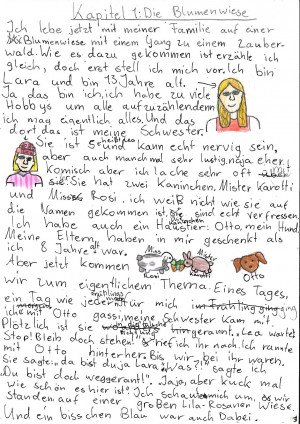 Kapitel 1: Die Blumenwiese
Ich lebe jetzt mit meiner Familie auf einer
Blumenwiese mit einem Gang zu einem Zauber-
wald. Wie es dazu gekommen ist erzähle ich
gleich, doch erst stell ich mich vor. Ich bin
Lara und bin 13 Jahre alt.
Ja, das bin ich, ich habe zu viele
Hobbys um alle aufzuzählendem
ich mag eigentlich alles. Und das
dort das ist meine Schwester.
Sie ist 5 heißt Lea und kann echt nervig sein,
aber auch manchmal sehr lustig, naja eher
komisch aber ich lache sehr oft
Sie hat zwei Kaninchen. Mister Karotti
und Miss Rosi, ich weiß nicht wie sie auf
die Namen gekommen ist. Sie sind echt verfressen.
Ich habe auch ein Haustier: Otto, mein Hund.
Meine Eltern haben in mir geschenkt als
ich 8 Jahre war.
Aber jetzt kommen
Miss
Rosi
Mister
Karotti
Otto
wir zum eigentlichem Thema. Eines Tages,
ein Tag wie jeder
ich mit Otto gassi, meine Schwester kam mit.
Plötzlich ist sie
gerannt. „Lea warte!
Stop! Bleib doch stehen!" rief ich ihr nach. Ich rannte
mit Otto hinterher. Bis wir bei ihr waren.
Sie sagte: „da bist du ja Lara." „Was?!" sagte ich
„Du bist doch weggerannt!". „Jaja, aber kuck mal
wie schön es hier ist". Ich schaute mich um, es wir
standen auf einer großen Lila-Rosanen Wiese.
Und ein bisschen Blau war auch Dabei.